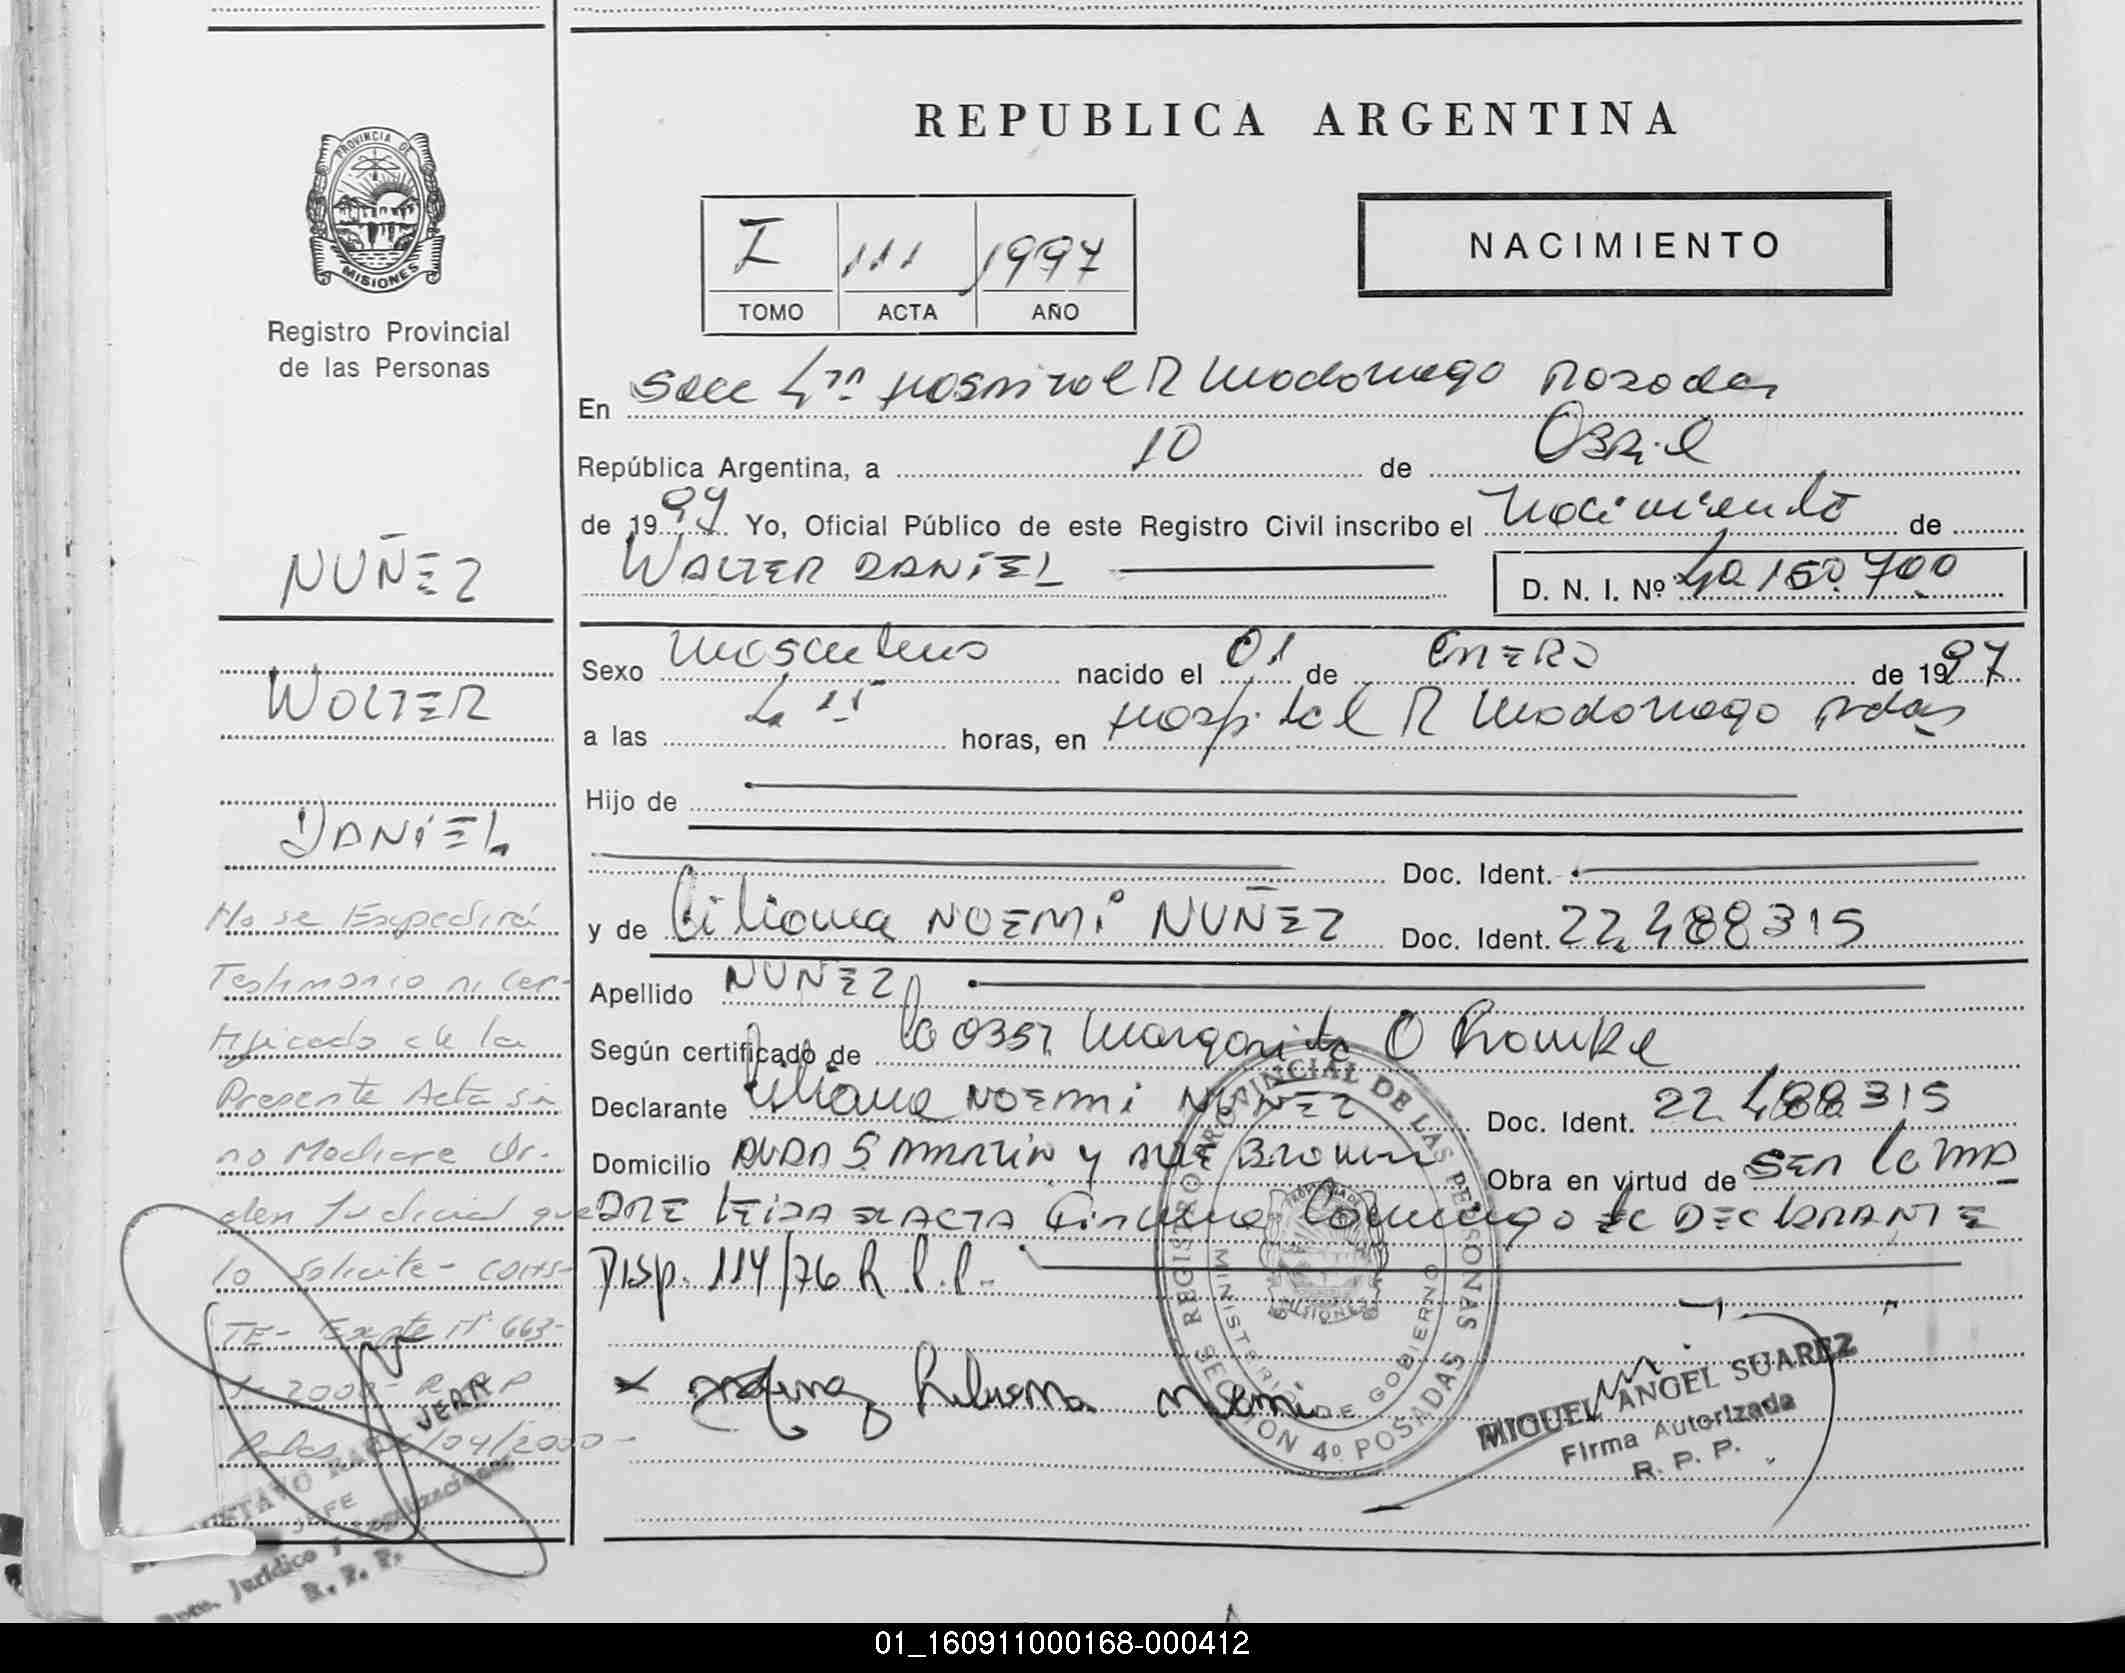 REPUBLICA ARGENTINA
PROVINCIA DE
MISIONES
Registro Provincial
de las Personas
I 111 1997
TOMO ACTA AÑO
NACIMIENTO
En Secc 4ta Hospital R Madariaga Posadas
República Argentina, a 10 de Abril
de 1997 Yo, Oficial Público de este Registro Civil inscribo el Nacimiento de
WALTER DANIEL D. N. I. Nº 40.150.700
Sexo Masculino nacido el 01 de ENERO de 1997
a las 4 15 horas, en Hospital R Madariaga Pdas
Hijo de
Doc. Ident.
y de Liliana NOEMI NUÑEZ Doc. Ident. 22.488315
Apellido NUÑEZ
Según certificado de la OBST. Margarita
Declarante Liliana NOEMI NUÑEZ Doc. Ident. 22.488315
Domicilio AVDA S MARTIN y ALTE Brown Obra en virtud de SER la MA
DRE LEIDA EL ACTA Firma Conmigo la DECLARANTE
Disp. 114/76 R.P.P.
NUÑEZ
WALTER
DANIEL
No se Expedirá
Testimonio ni Cer-
tificado de la
Presente Acta si
no Mediare Or-
den Judicial que
lo Solicite - CONS-
TE- Expte Nº 663-
2000- R.P.P
Pdas /04/2000-
JEFE
Dpto. Jurídico y
R. P. P.
REGISTRO PROVINCIAL DE LAS PERSONAS
MINISTERIO DE GOBIERNO
MISIONES
SECCION 4º POSADAS
MIGUEL ANGEL SUAREZ
Firma Autorizada
R. P. P.
01_160911000168-000412